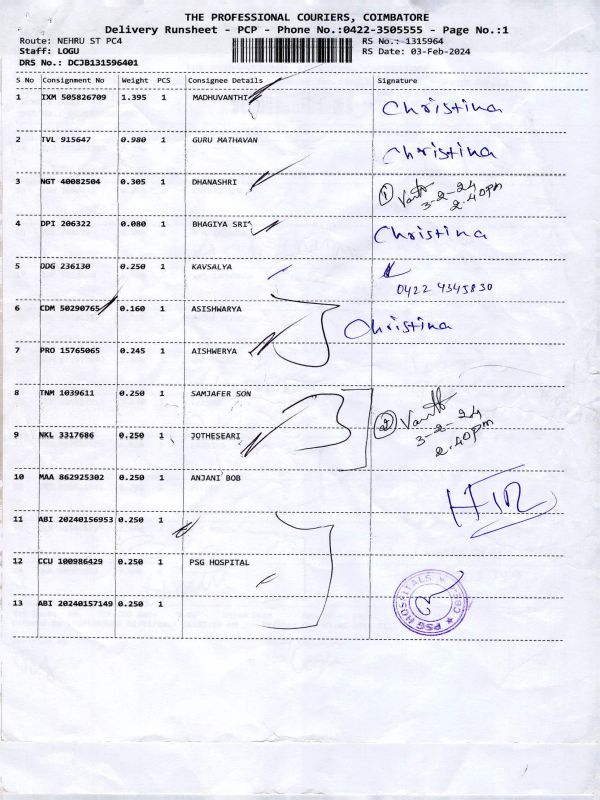 THE PROFESSIONAL COURIERS, COIMBATORE
Delivery Runsheet - PCP - Phone No.:0422-3505555 - Page No.:1
Route: NEHRU ST PC4 RS No.: 1315964
Staff: LOGU RS Date: 03-Feb-2024
DRS No.: DCJB131596401
S No Consignment No Weight PCS Consignee Details Signature
1 IXM 505826709 1.395 1 MADHUVANTHI Christina
2 TVL 915647 0.980 1 GURU MATHAVAN Christina
3 NGT 40082504 0.305 1 DHANASHRI 1
3-2-24
2.40pm
4 DPI 206322 0.080 1 BHAGIYA SRI Christina
5 DDG 236130 0.250 1 KAVSALYA
0422 4345830
6 CDM 50290765 0.160 1 ASISHWARYA Christina
7 PRO 15765065 0.245 1 AISHWERYA
8 TNM 1039611 0.250 1 SAMJAFER SON 2
3-2-24
9 NKL 3317686 0.250 1 JOTHESEARI 2.40pm
10 MAA 862925302 0.250 1 ANJANI BOB
11 ABI 20240156953 0.250 1
12 CCU 100986429 0.250 1 PSG HOSPITAL
13 ABI 20240157149 0.250 1
PSG HOSPITALS